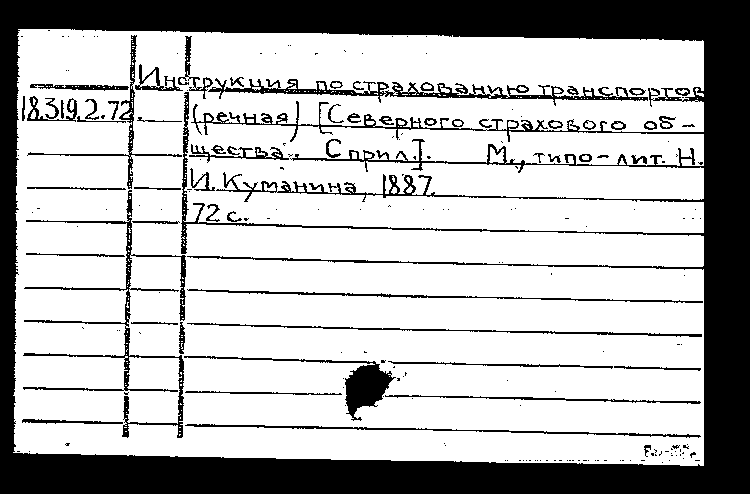 Инструкция по страхованию транспортов
18.319.2.72. (речная) [Северного страхового об-
щества. С прил.]. М., типо-лит. Н.
И. Куманина, 1887.
72 с.